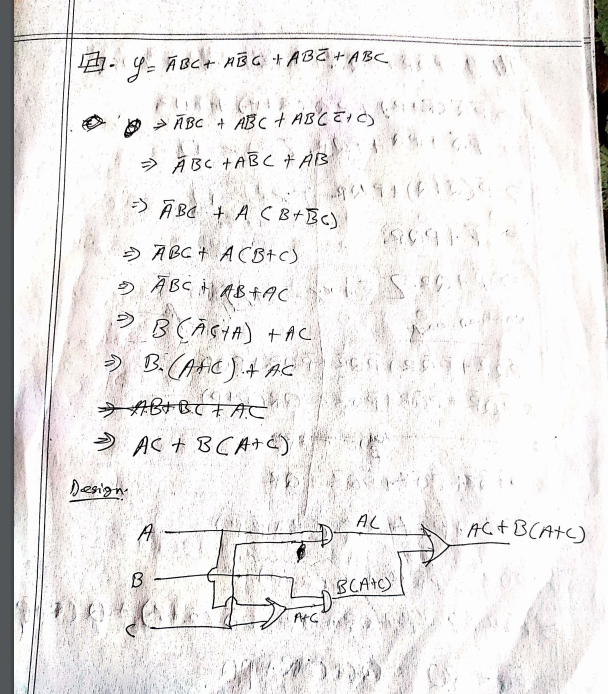 y = A̅BC + AB̅C + ABC̅ + ABC
⇒ A̅BC + AB̅C + AB(C̅+C)
⇒ A̅BC + AB̅C + AB
⇒ A̅BC + A(B+B̅C)
⇒ A̅BC + A(B+C)
⇒ A̅BC + AB+AC
⇒ B(A̅C+A) + AC
⇒ B.(A+C) + AC
⇒ AB+BC+AC
⇒ AC + B(A+C)
Design:
A AC AC+B(A+C)
B B(A+C)
C A+C